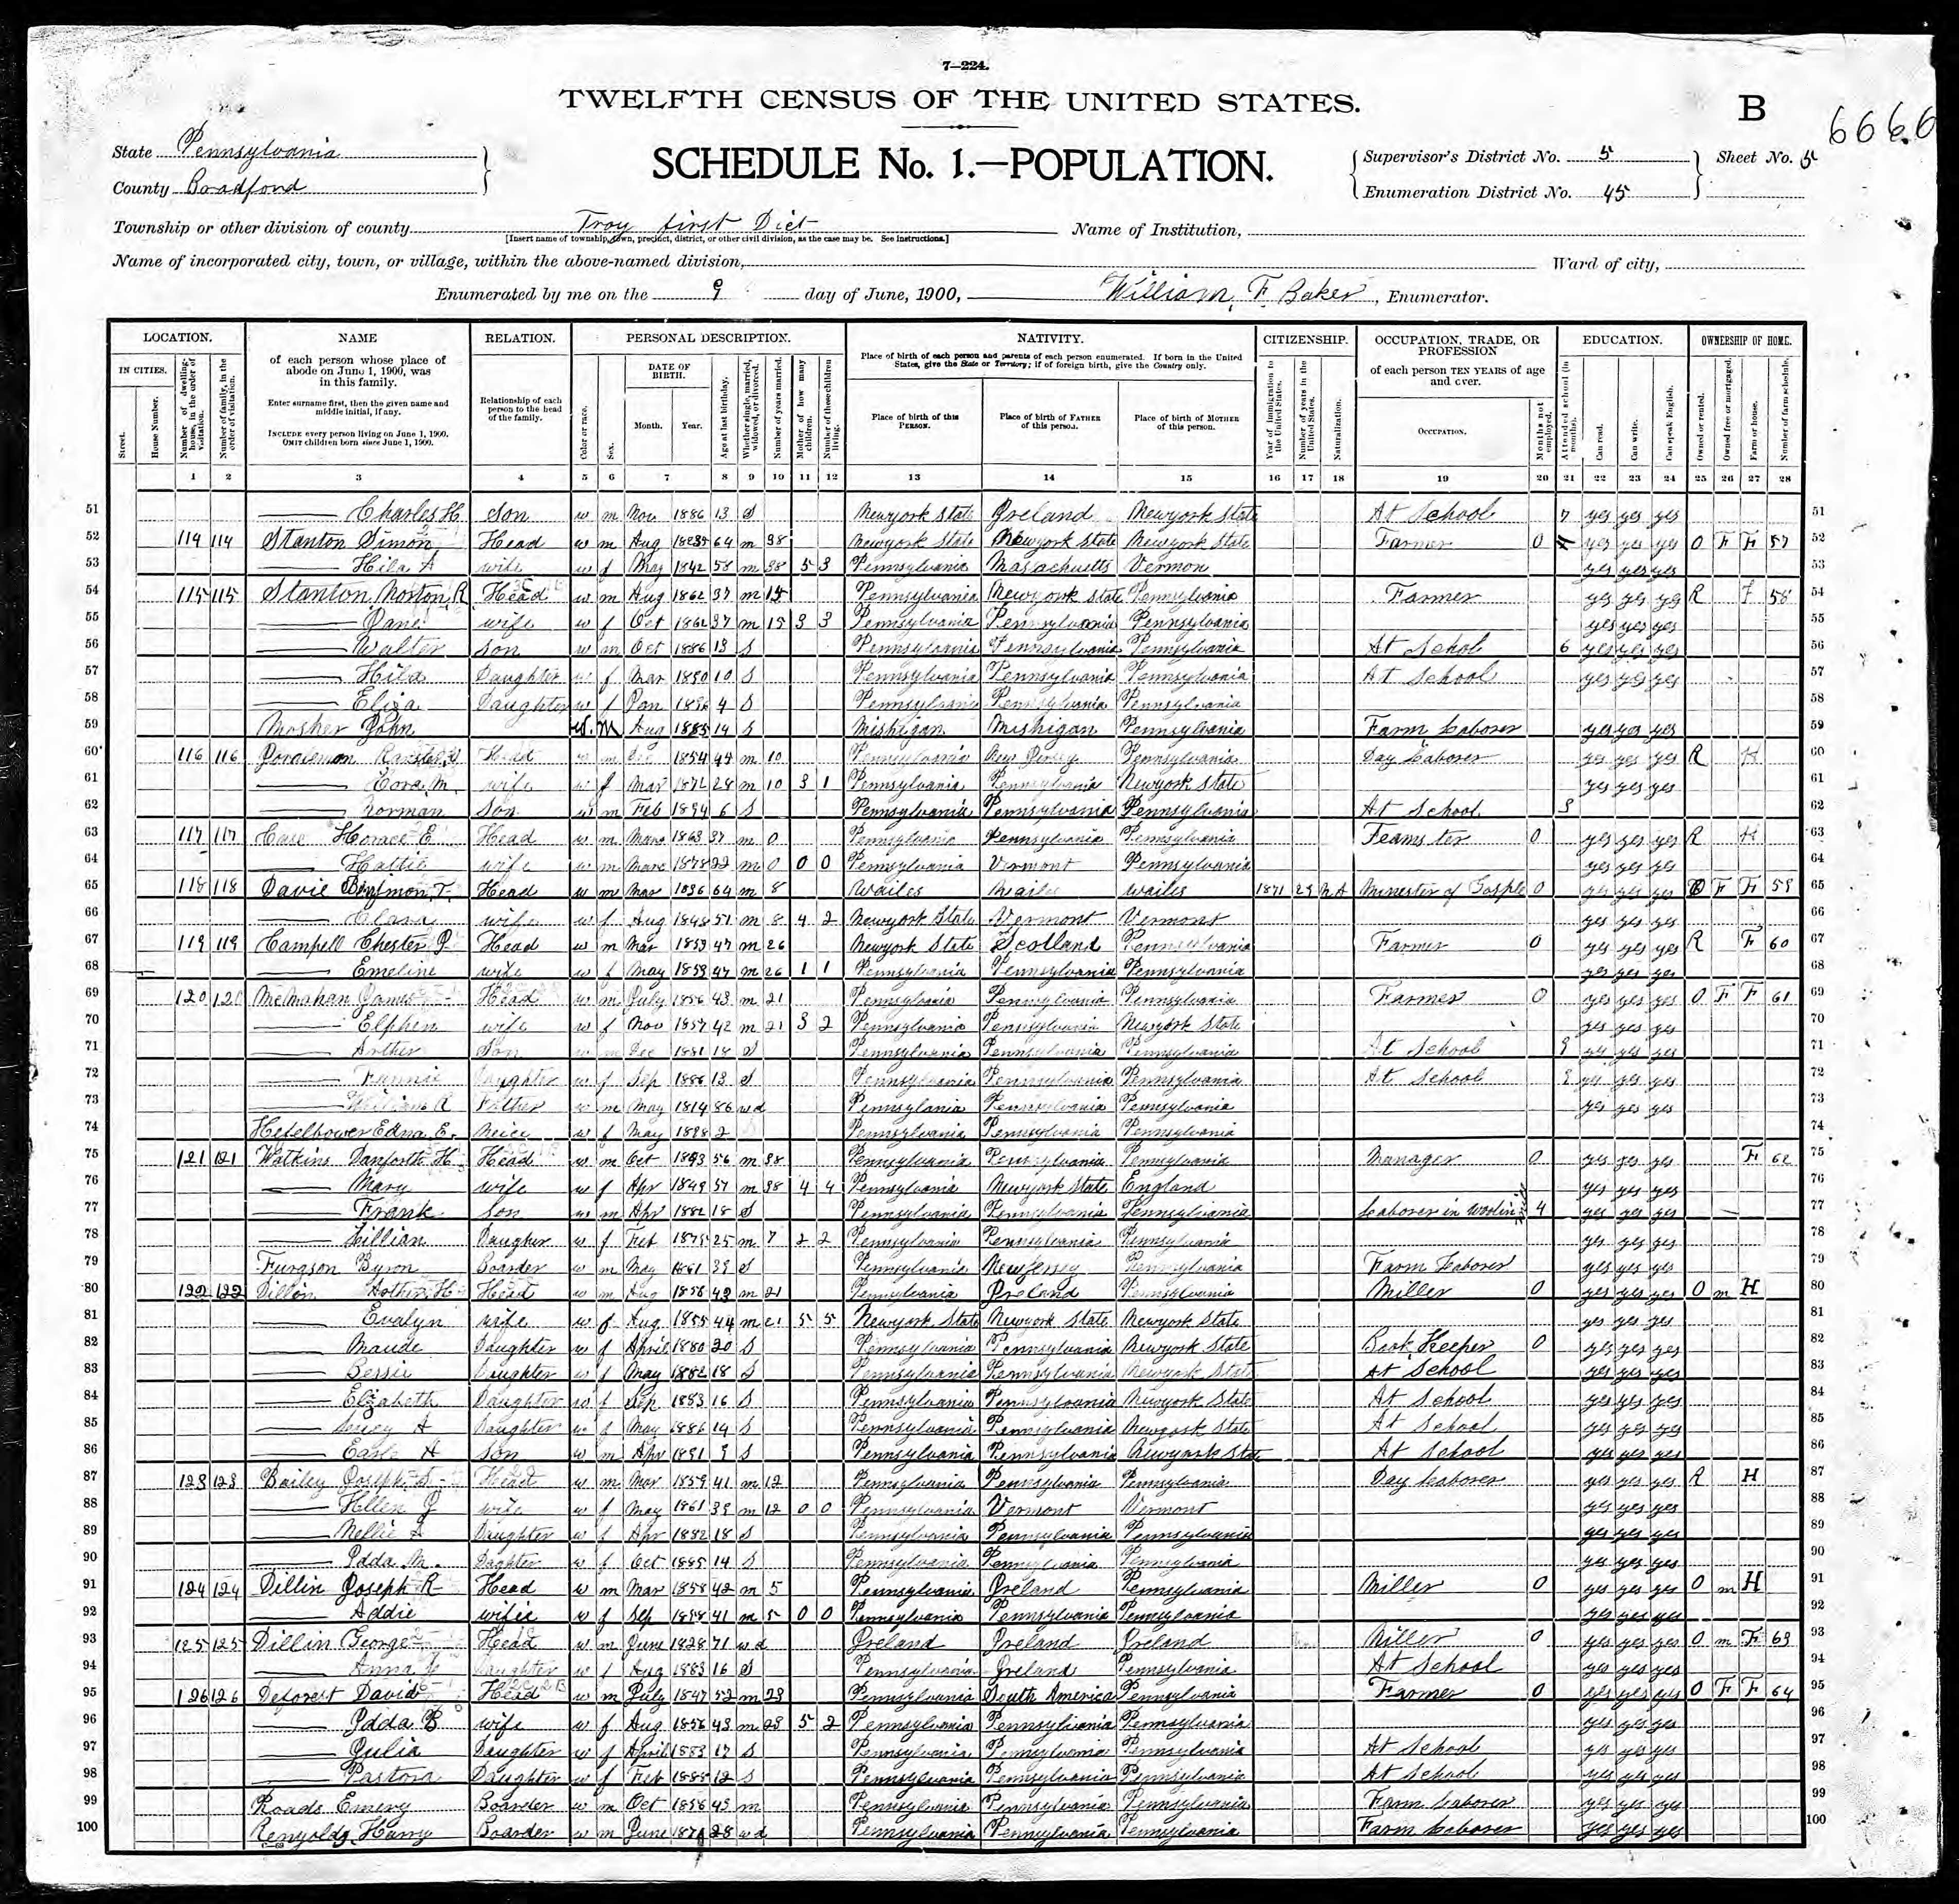 7—224.
TWELFTH CENSUS OF THE UNITED STATES.
B
6666
State Pennsylvania
County Bradford
SCHEDULE No. 1.—POPULATION.
Supervisor's District No. 5
Sheet No. 5
Enumeration District No. 45
Township or other division of county Troy first Dict
[Insert name of township, town, precinct, district, or other civil division, as the case may be. See instructions.]
Name of Institution,
Name of incorporated city, town, or village, within the above-named division,
Ward of city,
Enumerated by me on the 9 day of June, 1900, William F. Baker, Enumerator.
LOCATION. NAME RELATION. PERSONAL DESCRIPTION. NATIVITY. CITIZENSHIP. OCCUPATION, TRADE, OR PROFESSION EDUCATION. OWNERSHIP OF HOME.
IN CITIES. Street. House Number. Number of dwelling-house, in the order of visitation. Number of family, in the order of visitation.
of each person whose place of abode on June 1, 1900, was in this family.
Enter surname first, then the given name and middle initial, if any.
INCLUDE every person living on June 1, 1900.
OMIT children born since June 1, 1900.
Relationship of each person to the head of the family.
Color or race. Sex. DATE OF BIRTH. Month. Year. Age at last birthday. Whether single, married, widowed, or divorced. Number of years married. Mother of how many children. Number of these children living.
Place of birth of each person and parents of each person enumerated. If born in the United States, give the State or Territory; if of foreign birth, give the Country only.
Place of birth of this PERSON. Place of birth of FATHER of this person. Place of birth of MOTHER of this person.
Year of immigration to the United States. Number of years in the United States. Naturalization.
of each person TEN YEARS of age and over.
OCCUPATION. Months not employed.
Attended school (in months). Can read. Can write. Can speak English.
Owned or rented. Owned free or mortgaged. Farm or house. Number of farm schedule.
1 2 3 4 5 6 7 8 9 10 11 12 13 14 15 16 17 18 19 20 21 22 23 24 25 26 27 28
51 Charles H Son w m Nov 1886 13 S Newyork State Ireland Newyork State At School 7 yes yes yes 51
52 114 114 Stanton Simon Head w m Aug 64 m 38 Newyork State Newyork State Newyork State Farmer 0 yes yes yes O F F 57 52
53 Hila A wife w f May 1842 58 m 38 5 3 Pennsylvania Masachuetts Vermon yes yes yes 53
54 115 115 Stanton Morton R Head w m Aug 1862 37 m 15 Pennsylvania Newyork State Pennsylvania Farmer yes yes yes R F 58 54
55 Jane wife w f Oct 1862 37 m 15 3 3 Pennsylvania Pennsylvania Pennsylvania yes yes yes 55
56 Walter Son w m Oct 1886 13 S Pennsylvania Pennsylvania Pennsylvania At School 6 yes yes yes 56
57 Hila Daughter w f Mar 1890 10 S Pennsylvania Pennsylvania Pennsylvania At School yes yes yes 57
58 Eliza Daughter w f Jan 1896 4 S Pennsylvania Pennsylvania Pennsylvania 58
59 Mosher John W. M Aug 1885 14 S Mishigan Mishigan Pennsylvania Farm Laborer yes yes yes 59
60 116 116 Head w m 1854 m 10 Pennsylvania New Jersey Pennsylvania Day Laborer yes yes yes R H 60
61 Cora M. wife w f Mar 1872 28 m 10 3 1 Pennsylvania Pennsylvania Newyork State yes yes yes 61
62 Norman Son w m Feb 1894 6 S Pennsylvania Pennsylvania Pennsylvania At School 3 62
63 117 117 Case Horace E Head w m 1863 37 m 0 Pennsylvania Pennsylvania Pennsylvania Teamster 0 yes yes yes R H 63
64 Hattie wife w m 1878 22 m 0 0 0 Pennsylvania Vermont Pennsylvania yes yes yes 64
65 118 118 T. Head w m Mar 1836 64 m 8 Wailes Wailes Wailes 1871 29 NA Minester of Gosple 0 yes yes yes O F F 59 65
66 Clara wife w f Aug 1848 51 m 8 4 2 Newyork State Vermont Vermont yes yes yes 66
67 119 119 Campell Chester J Head w m Mar 1853 47 m 26 Newyork State Scotland Pennsylvania Farmer 0 yes yes yes R F 60 67
68 Emeline wife w f May 1853 47 m 26 1 1 Pennsylvania Pennsylvania Pennsylvania yes yes yes 68
69 120 120 McMahan James Head w m July 1856 43 m 21 Pennsylvania Pennsylvania Pennsylvania Farmer 0 yes yes yes O F F 61 69
70 Elphen wife w f Nov 1857 42 m 21 3 2 Pennsylvania Pennsylvania Newyork State yes yes yes 70
71 Arther Son w m Dec 1881 18 S Pennsylvania Pennsylvania Pennsylvania At School 9 yes yes yes 71
72 Fannie Daughter w f Sep 1886 13 S Pennsylvania Pennsylvania Pennsylvania At School 9 yes yes yes 72
73 William R Father w m May 1814 86 wd Pennsylania Pennsylvania Pennsylvania yes yes yes 73
74 Hefelbower Edna E. Neice w f May 1898 2 Pennsylvania Pennsylvania Pennsylvania 74
75 121 121 Watkins Danforth H Head w m Oct 56 m 38 Pennsylvania Pennsylvania Pennsylvania Manager 0 yes yes yes F 62 75
76 Mary wife w f Apr 1849 51 m 38 4 4 Pennsylvania Newyork State England yes yes yes 76
77 Frank Son w m Apr 1882 18 S Pennsylvania Pennsylvania Pennsylvania Laborer in 4 yes yes yes 77
78 Lillian Daugher w f Feb 1875 25 m 7 2 2 Pennsylvania Pennsylvania Pennsylvania yes yes yes 78
79 Furgson Byron Boarder w m May 39 S Pennsylvania New Jersey Pennsylvania Farm Laborer yes yes yes 79
80 122 122 Dillon Arther H Head w m Aug m 21 Pennsylvania Ireland Pennsylvania Miller 0 yes yes yes O m H 80
81 Evalyn wife w f Aug 1855 44 m 21 5 5 Newyork State Newyork State Newyork State yes yes yes 81
82 Maude Daughter w f April 1880 20 S Pennsylvania Pennsylvania Newyork State Book Keeper 0 yes yes yes 82
83 Bessie Daughter w f May 1882 18 S Pennsylvania Pennsylvania Newyork State At School yes yes yes 83
84 Elizabeth Daughter w f Sep 1883 16 S Pennsylvania Pennsylvania Newyork State At School yes yes yes 84
85 Lucy A Daughter w f May 1886 14 S Pennsylvania Pennsylvania Newyork State At School yes yes yes 85
86 Earl H Son w m Apr 1891 9 S Pennsylvania Pennsylvania Newyork State At School yes yes yes 86
87 123 123 Bailey Joseph S Head w m Mar 1859 41 m 12 Pennsylvania Pennsylvania Pennsylvania Day Laborer yes yes yes R H 87
88 Hellen J wife w f May 1861 39 m 12 0 0 Pennsylvania Vermont Vermont yes yes yes 88
89 Nellie Daughter w f Apr 1882 18 S Pennsylvania Pennsylvania Pennsylvania yes yes yes 89
90 Idda M. Daghter w f Oct 1885 14 S Pennsylvania Pennsylvania Pennsylvania yes yes yes 90
91 124 124 Dillin Joseph R Head w m Mar 1858 42 m 5 Pennsylvania Ireland Pennsylvania Miller 0 yes yes yes O m H 91
92 Addie wifie w f Sep 1858 41 m 5 0 0 Pennsylvania Pennsylvania Pennsylvania yes yes yes 92
93 125 125 Dillin George Head w m June 1828 71 wd Ireland Ireland Ireland Miller 0 yes yes yes O m F 63 93
94 Anna Daughter w f Aug 1883 16 S Pennsylvania Ireland Pennsylvania At School yes yes yes 94
95 126 126 Deforest David Head w m July 1847 52 m 23 Pennsylvania South America Pennsylvania Farmer 0 yes yes yes O F F 64 95
96 Idda B wife w f Aug 1856 43 m 23 5 2 Pennsylvania Pennsylvania Pennsylvania yes yes yes 96
97 Julia Daughter w f April 1883 17 S Pennsylvania Pennsylvania Pennsylvania At School yes yes yes 97
98 Pastora Daughter w f Feb 1888 12 S Pennsylvania Pennsylvania Pennsylvania At School yes yes yes 98
99 Roads Emery Boarder w m Oct 1856 43 m Pennsylvania Pennsylvania Pennsylvania Farm Laborer yes yes yes 99
100 Renyolds Harry Boarder w m June 1871 28 wd Pennsylvania Pennsylvania Pennsylvania Farm Laborer yes yes yes 100